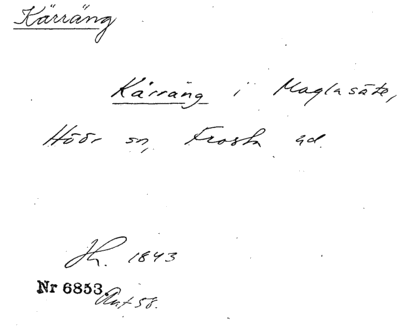 Kärräng
Kärräng i Maglasäte,
Höör sn, Frosta hd.
1843
Nr 6853
Ant 58.